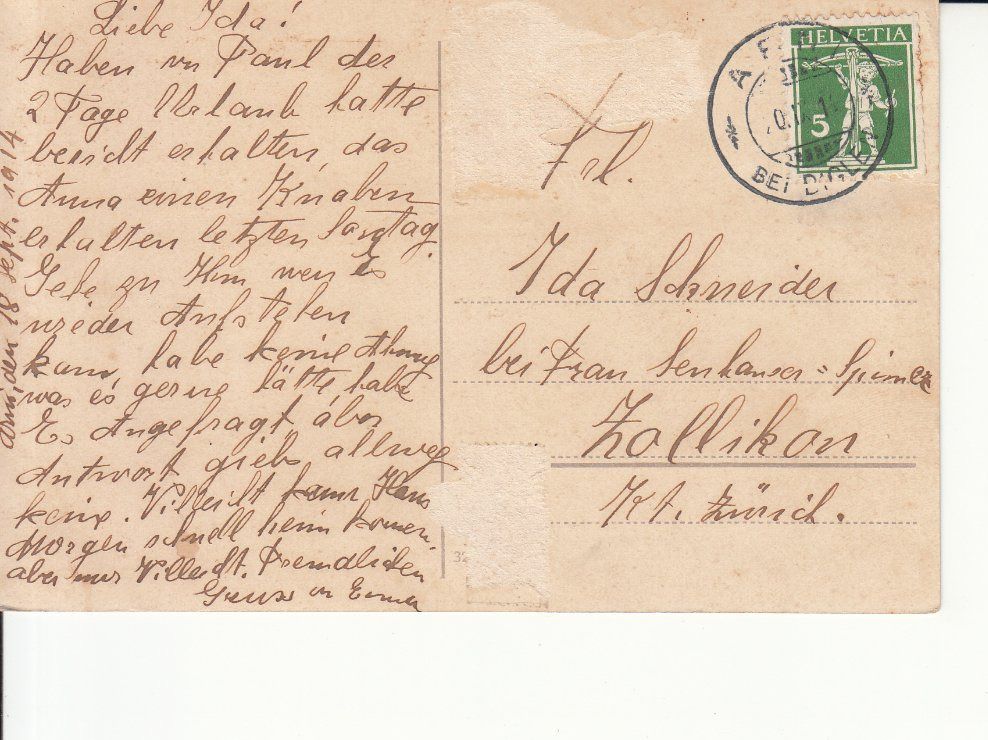 Liebe Ida!
Haben vn Paul der
2 Tage Urlaub hatte
bericht erhalten, das
Anna einen Knaben
erhalten letzten Sontag.
Gebe zu Him wen Es
wieder Aufstehen
kann, habe keine Ahnug
was es gerne hätte, habe
Es Angefragt aber
Antwort giebs allweg
keine. Villeicht kann Hans
Morgen schnell heim komen.
aber nur Villeicht. Freundlichen
Gruss vn
den 18 Sept. 1914
HELVETIA
5
BEI BIGLEN
Frl.
Ida Schneider
bei Frau Senhauser-
Zollikon
Kt. Zürich.